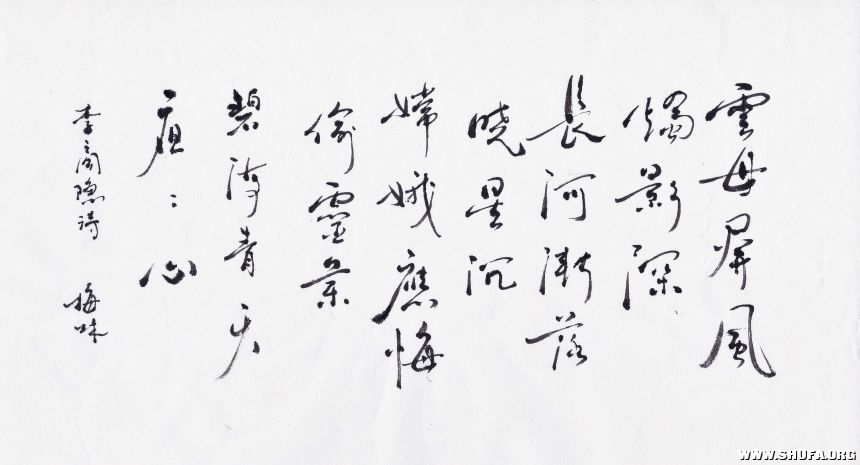 雲母屏風
燭影深
長河漸落
曉星沉
嫦娥應悔
偷靈藥
碧海青天
夜〻心
李商隱詩 梅味
WWW.SHUFA.ORG